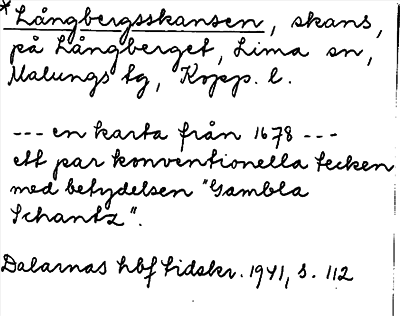 *Långbergsskansen, skans,
på Långberget, Lima sn,
Malungs tg, Kopp. l.
--- en karta från 1678 ---
ett par konventionella tecken
med betydelsen "Gambla
Schantz".
Dalarnas hbf tidskr. 1941, s. 112